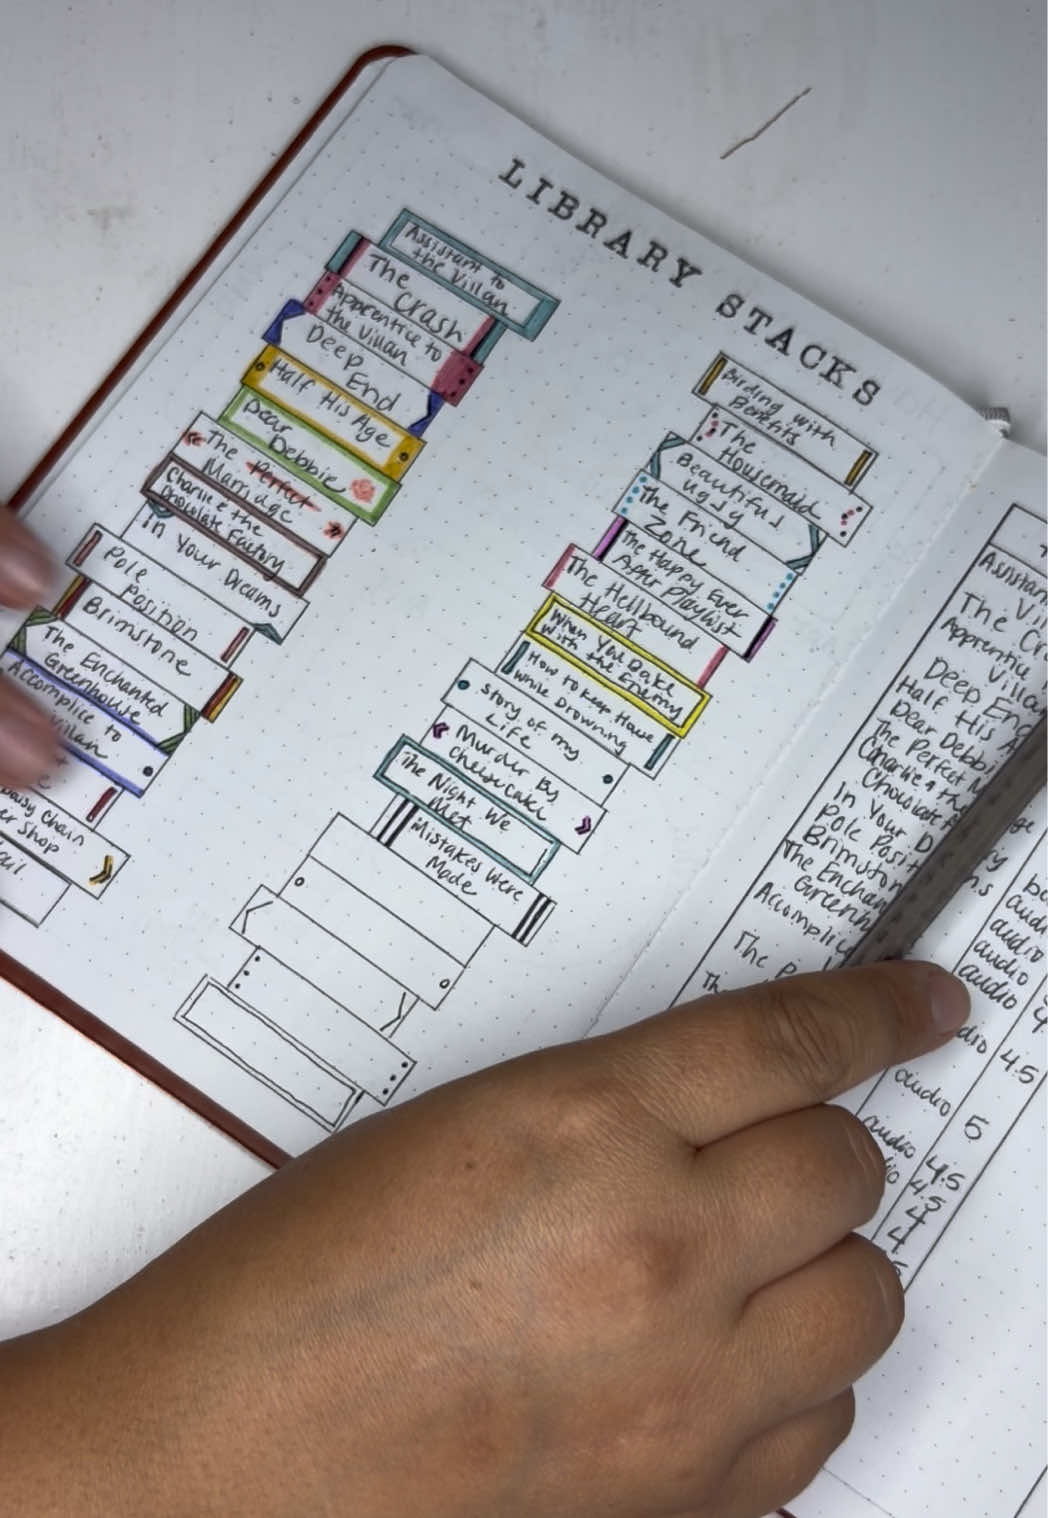 LIBRARY STACKS
Assistant to
the Villan
The
Crash
Apprentice to
the Villan
Deep
End
Half His Age
Dear
Debbie
The Perfect
Marriage
Charlie & the
Chocolate Factory
in Your Dreams
Pole
Position
Brimstone
The Enchanted
Greenhouse
Accomplice to
Villan
Daisy Chain
er Shop
Birding with
Benefits
The
Housemaid
Beautiful
ugly
The Friend
Zone
The Happy Ever
After Playlist
The Hellbound
Heart
When You Bake
With the Enemy
How to Keep House
While Drowning
Story of my
Life
Murder By
Cheesecake
The Night We
Met
Mistakes Were
Made
Assistan
Vil
The Cr
Apprentic
Villa
Deep End
Half His A
Dear Debbi
The Perfect M
Charlie & the
Chocolate F
In Your D
Pole Posit
Brimston
The Enchan
Greenh
Accomplic
The P
Th
audio
audio
audio
audio 4
dio 4.5
audio 5
audio 4.5
dio 4.5
4
4